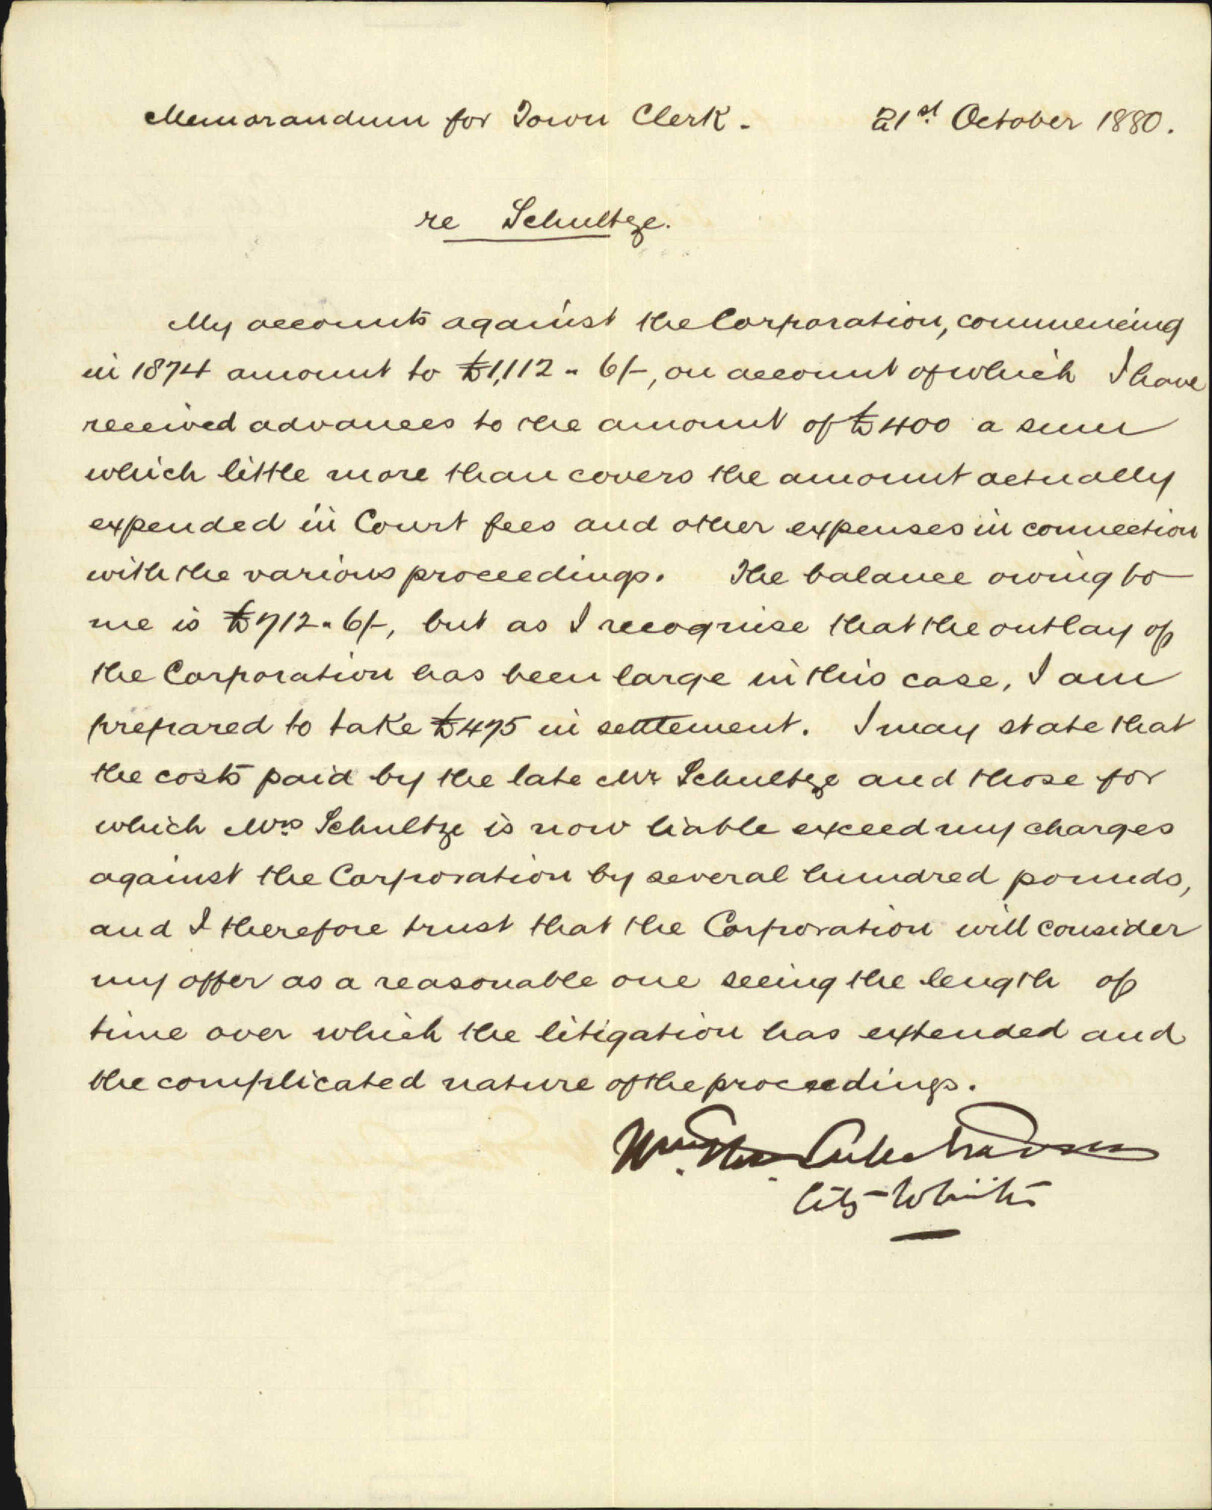 Memorandum for Town Clerk. 21st October 1880.
re Schultze.
My accounts against the Corporation, commencing
in 1874 amount to £1,112 " 6/-, on account of which I have
received advances to the amount of £400 a sum
which little more than covers the amount actually
expended in Court fees and other expenses in connection
with the various proceedings. The balance owing to
me is £712 " 6/-, but as I recognise that the outlay of
the Corporation has been large in this case, I am
prepared to take £475 in settlement. I may state that
the costs paid by the late Mr Schultze and those for
which Mrs Schultze is now liable exceed my charges
against the Corporation by several hundred pounds,
and I therefore trust that the Corporation will consider
my offer as a reasonable one seeing the length of
time over which the litigation has extended and
the complicated nature of the proceedings.
Wm. Thos.
City